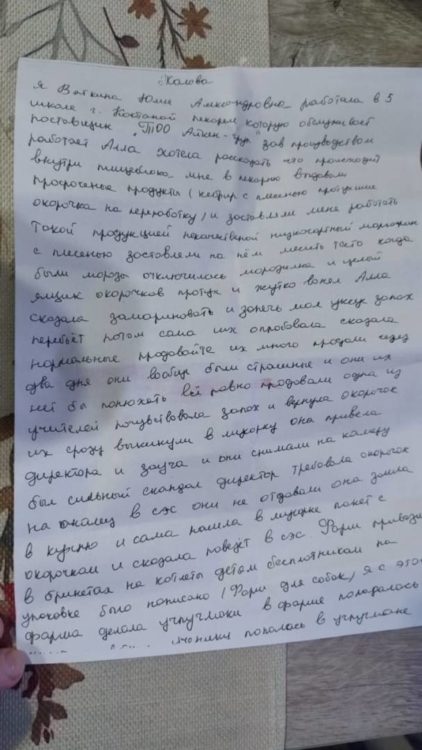 Жалоба
я Вяткина Юлия Александровна работала в 5
школе г. Костанай пекарем которую обслуживает
поставщик "ТОО Айкен-груп" зав производством
работает Алла хотела рассказать что происходит
внутри пищеблока мне в пекарню
просроченые продукты (кефир с плесенью протухшие
окорочка на переработку) и заставляли меня работать
Такой продукцией некачественой низкосортный маргарин
с плесенью заставляли на нём месить тесто когда
были морозы отключилась морозилка и целой
ящик окорочков протух и жутко вонял Алла
сказала замариновать и запечь мол уксус запах
перебьёт потом сама их опробовала сказала
нормальные продавайте их много продали через
два дня они вообще были страшные и они их
нет бы понюхать всё равно продовали одна из
учителей почувствовала запах и вернула окорочок
их сразу выкинули в мусорку она привела
директора и завуча и они снимали на камеру
был сильный скандал директор требовала окорочок
на анализ в сэс они не отдовали она зашла
в кухню и сама нашла в мусорке пакет с
окорочком и сказала повезёт в сэс. Фарш привозили
в брикетах на котлеты детям бесплатникам на
упаковке было написано (Фарш для собак) я с этого
фарша делала учпучмоки в фарше попадалось
попалось в учпучмоке